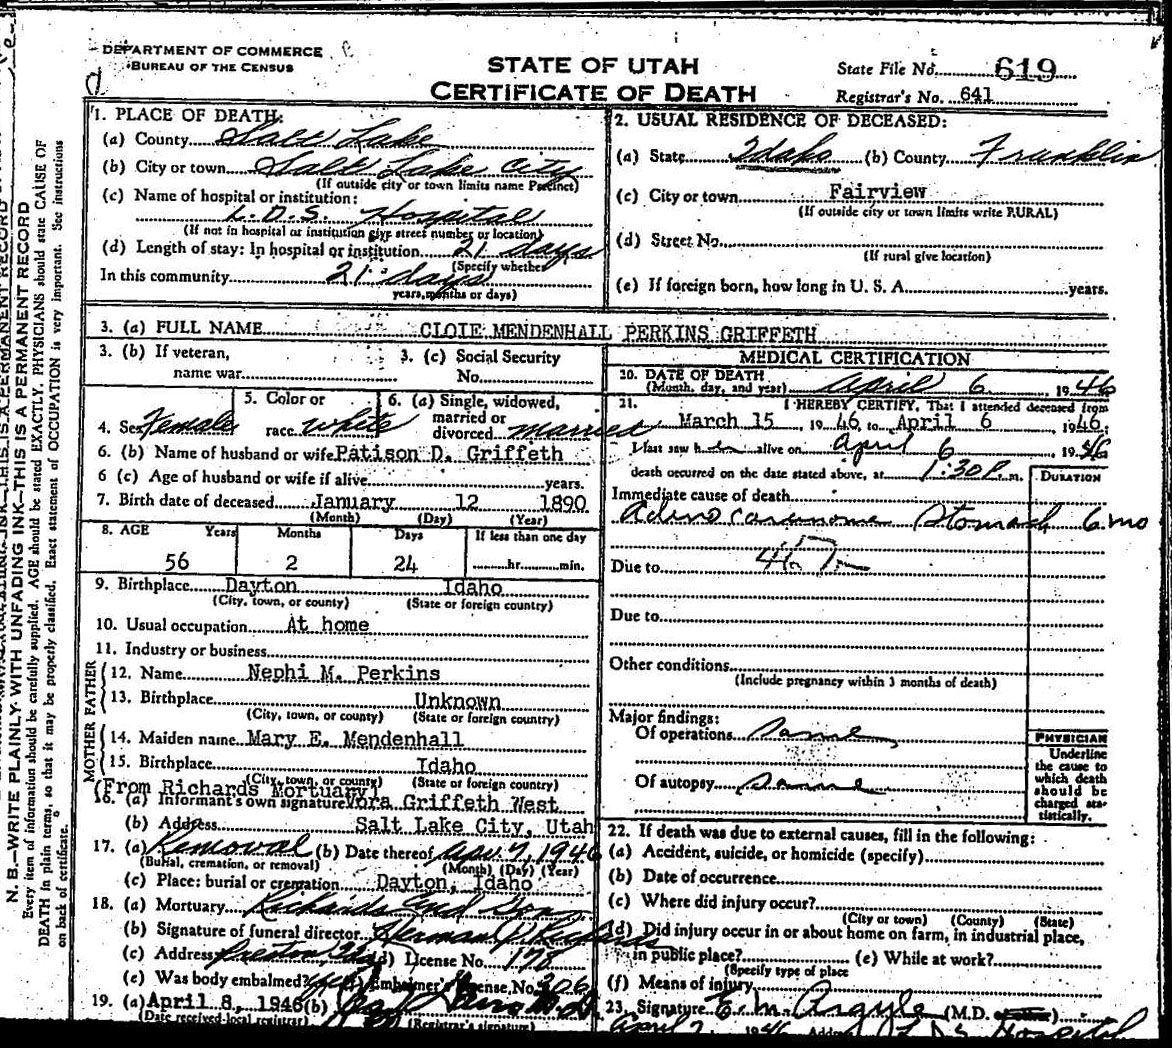 DEPARTMENT OF COMMERCE
BUREAU OF THE CENSUS
STATE OF UTAH
CERTIFICATE OF DEATH
State File No. 619
Registrar's No. 641
1. PLACE OF DEATH:
(a) County Salt Lake
(b) City or town Salt Lake City
(If outside city or town limits name Precinct)
(c) Name of hospital or institution:
L.D.S. Hospital
(If not in hospital or institution give street number or location)
(d) Length of stay: In hospital or institution 21 days
(Specify whether
In this community 21 days
years, months or days)
2. USUAL RESIDENCE OF DECEASED:
(a) State Idaho (b) County Franklin
(c) City or town Fairview
(If outside city or town limits write RURAL)
(d) Street No.
(If rural give location)
(e) If foreign born, how long in U. S. A. years.
3. (a) FULL NAME CLOIE MENDENHALL PERKINS GRIFFETH
3. (b) If veteran, name war
3. (c) Social Security No.
4. Sex Female
5. Color or race white
6. (a) Single, widowed, married or divorced married
6. (b) Name of husband or wife Patison D. Griffeth
6 (c) Age of husband or wife if alive years.
7. Birth date of deceased January 12 1890
(Month) (Day) (Year)
8. AGE Years Months Days If less than one day
56 2 24 hr. min.
9. Birthplace Dayton Idaho
(City, town, or county) (State or foreign country)
10. Usual occupation At home
11. Industry or business
FATHER
12. Name Nephi M. Perkins
13. Birthplace Unknown
(City, town, or county) (State or foreign country)
MOTHER
14. Maiden name Mary E. Mendenhall
15. Birthplace Idaho
(City, town, or county) (State or foreign country)
(From Richards Mortuary)
16. (a) Informant's own signature Vora Griffeth West
(b) Address Salt Lake City, Utah
17. (a) Removal (b) Date thereof Apr. 7, 1946
(Burial, cremation, or removal) (Month) (Day) (Year)
(c) Place: burial or cremation Dayton, Idaho
18. (a) Mortuary Richards and Son
(b) Signature of funeral director
(c) Address Preston License No. 178
(e) Was body embalmed? yes Embalmer's License No. 306
19. (a) April 8, 1946 (b)
(Date received local registrar) (Registrar's signature)
MEDICAL CERTIFICATION
20. DATE OF DEATH
(Month, day, and year) April 6, 1946
21. I HEREBY CERTIFY, That I attended deceased from
March 15, 1946, to April 6, 1946,
I last saw her alive on April 6, 1946
death occurred on the date stated above, at 1:30 P. m.
DURATION
Immediate cause of death
Adenocarcinoma Stomach 6 mo
Due to
Due to
Other conditions
(Include pregnancy within 3 months of death)
Major findings:
Of operations Same
Of autopsy Same
PHYSICIAN
Underline
the cause to
which death
should be
charged sta-
tistically.
22. If death was due to external causes, fill in the following:
(a) Accident, suicide, or homicide (specify)
(b) Date of occurrence
(c) Where did injury occur?
(City or town) (County) (State)
(d) Did injury occur in or about home on farm, in industrial place,
in public place? (e) While at work?
(Specify type of place
(f) Means of injury
23. Signature E. M. Argyle (M.D.
April 1946 Address L.D.S. Hospital
N. B.—WRITE PLAINLY WITH UNFADING INK—THIS IS A PERMANENT RECORD
Every item of information should be carefully supplied. AGE should be stated EXACTLY. PHYSICIANS should state CAUSE OF
DEATH in plain terms, so that it may be properly classified. Exact statement of OCCUPATION is very important. See instructions
on back of certificate.